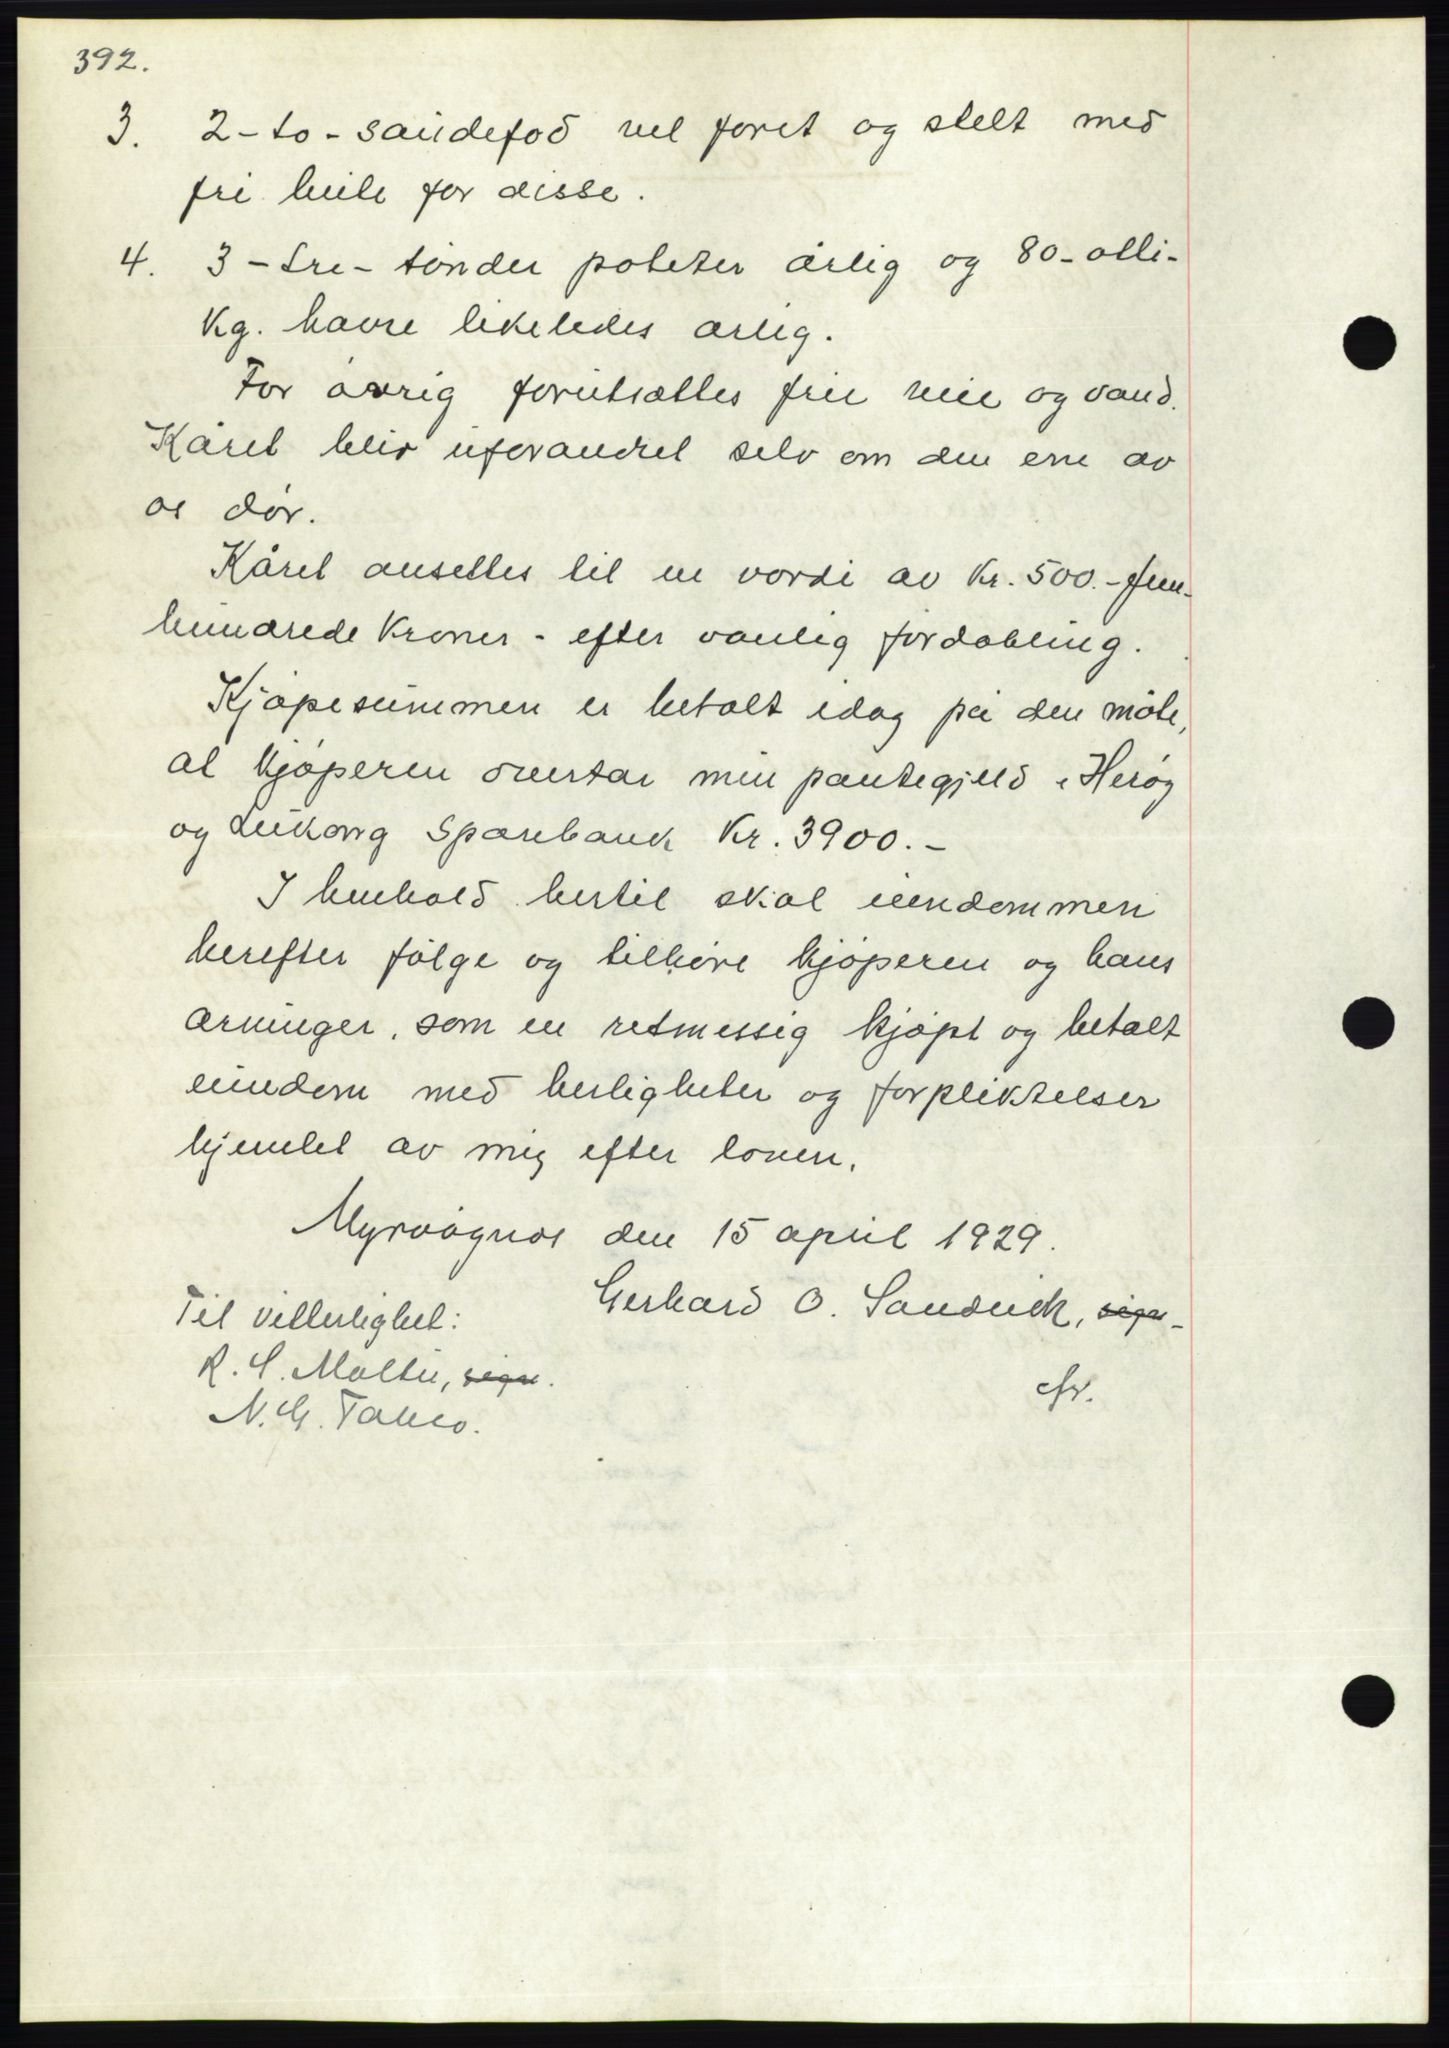 392.
3. 2-to-sauefød vel foret og stelt med
fri beite for disse.
4. 3-tre-tønder poteter årlig og 80-otti-
kg. havre likeledes årlig.
For øvrig forutsættes frie veie og vand.
Kåret blir uforandret selv om den ene av
os dør.
Kåret ansettes til en værdi av kr. 500.- fem-
hundrede kroner - efter vanlig fordobling.
Kjøpesummen er betalt idag på den måte,
at kjøperen overtar min pantegjeld i Herøy
og Leikong Sparebank kr. 3900.-
I henhold hertil skal eiendommen
herefter følge og tilhøre kjøperen og hans
arvinger, som en retmessig kjøpt og betalt
eiendom med herligheter og forpliktelser
hjemlet av mig efter loven.
Myrvågnes den 15 april 1929.
Gerhard O. Sandvik, sign.
Til vitterlighet:
R. S. Moltu, sign.
N. G.